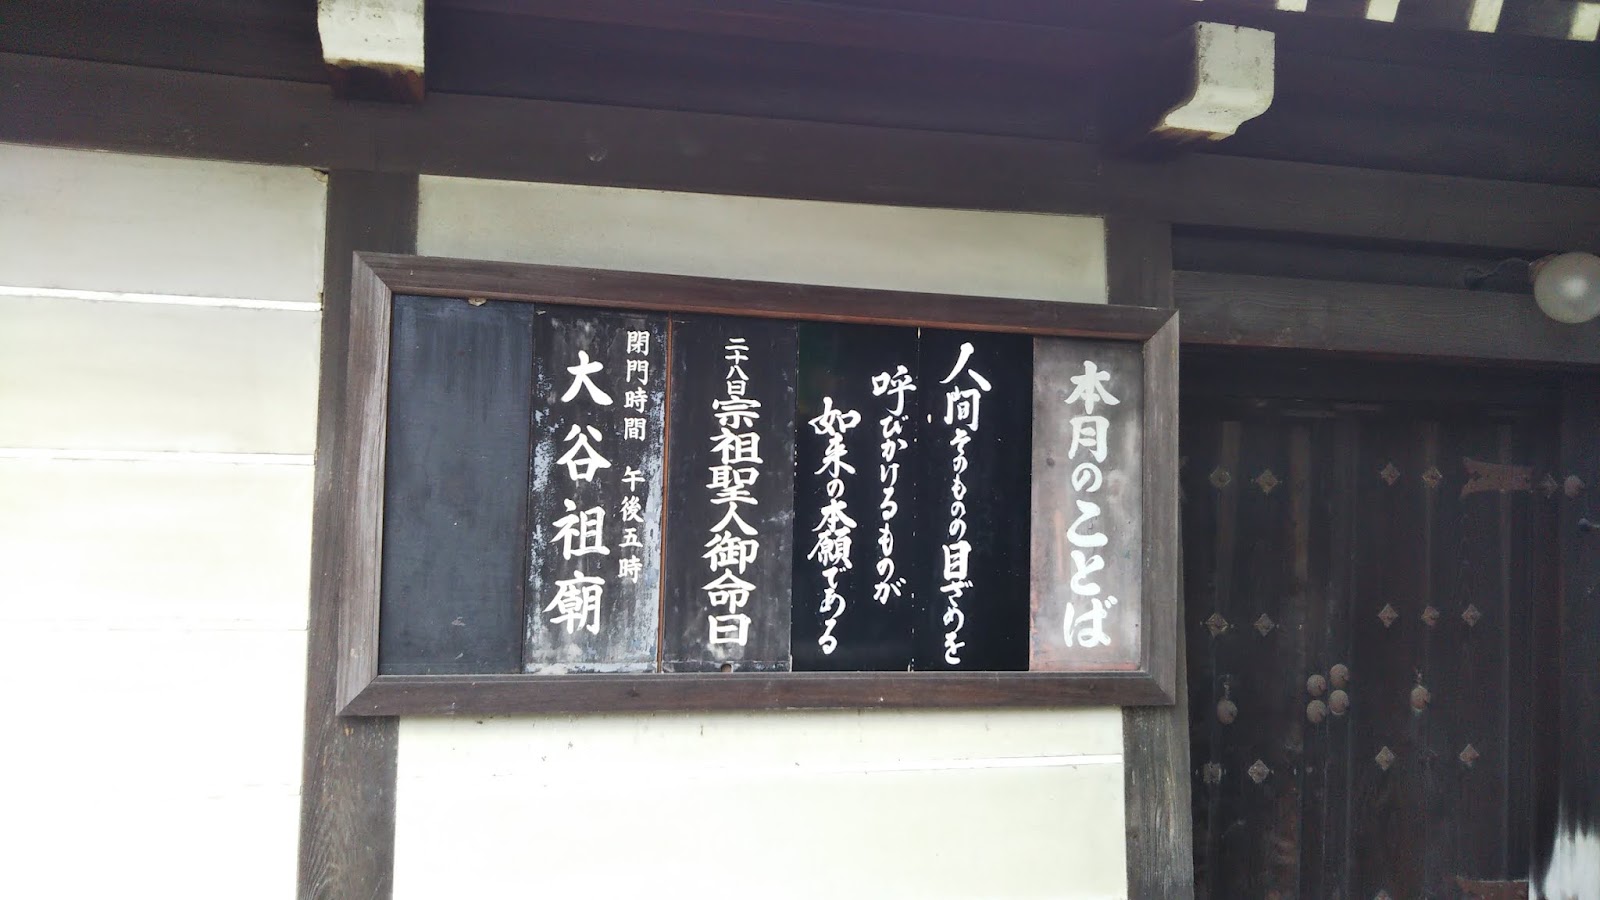 本月のことば
人間そのものの目ざめを
呼びかけるものが
如来の本願である
二十八日宗祖聖人御命日
閉門時間 午後五時
大谷祖廟